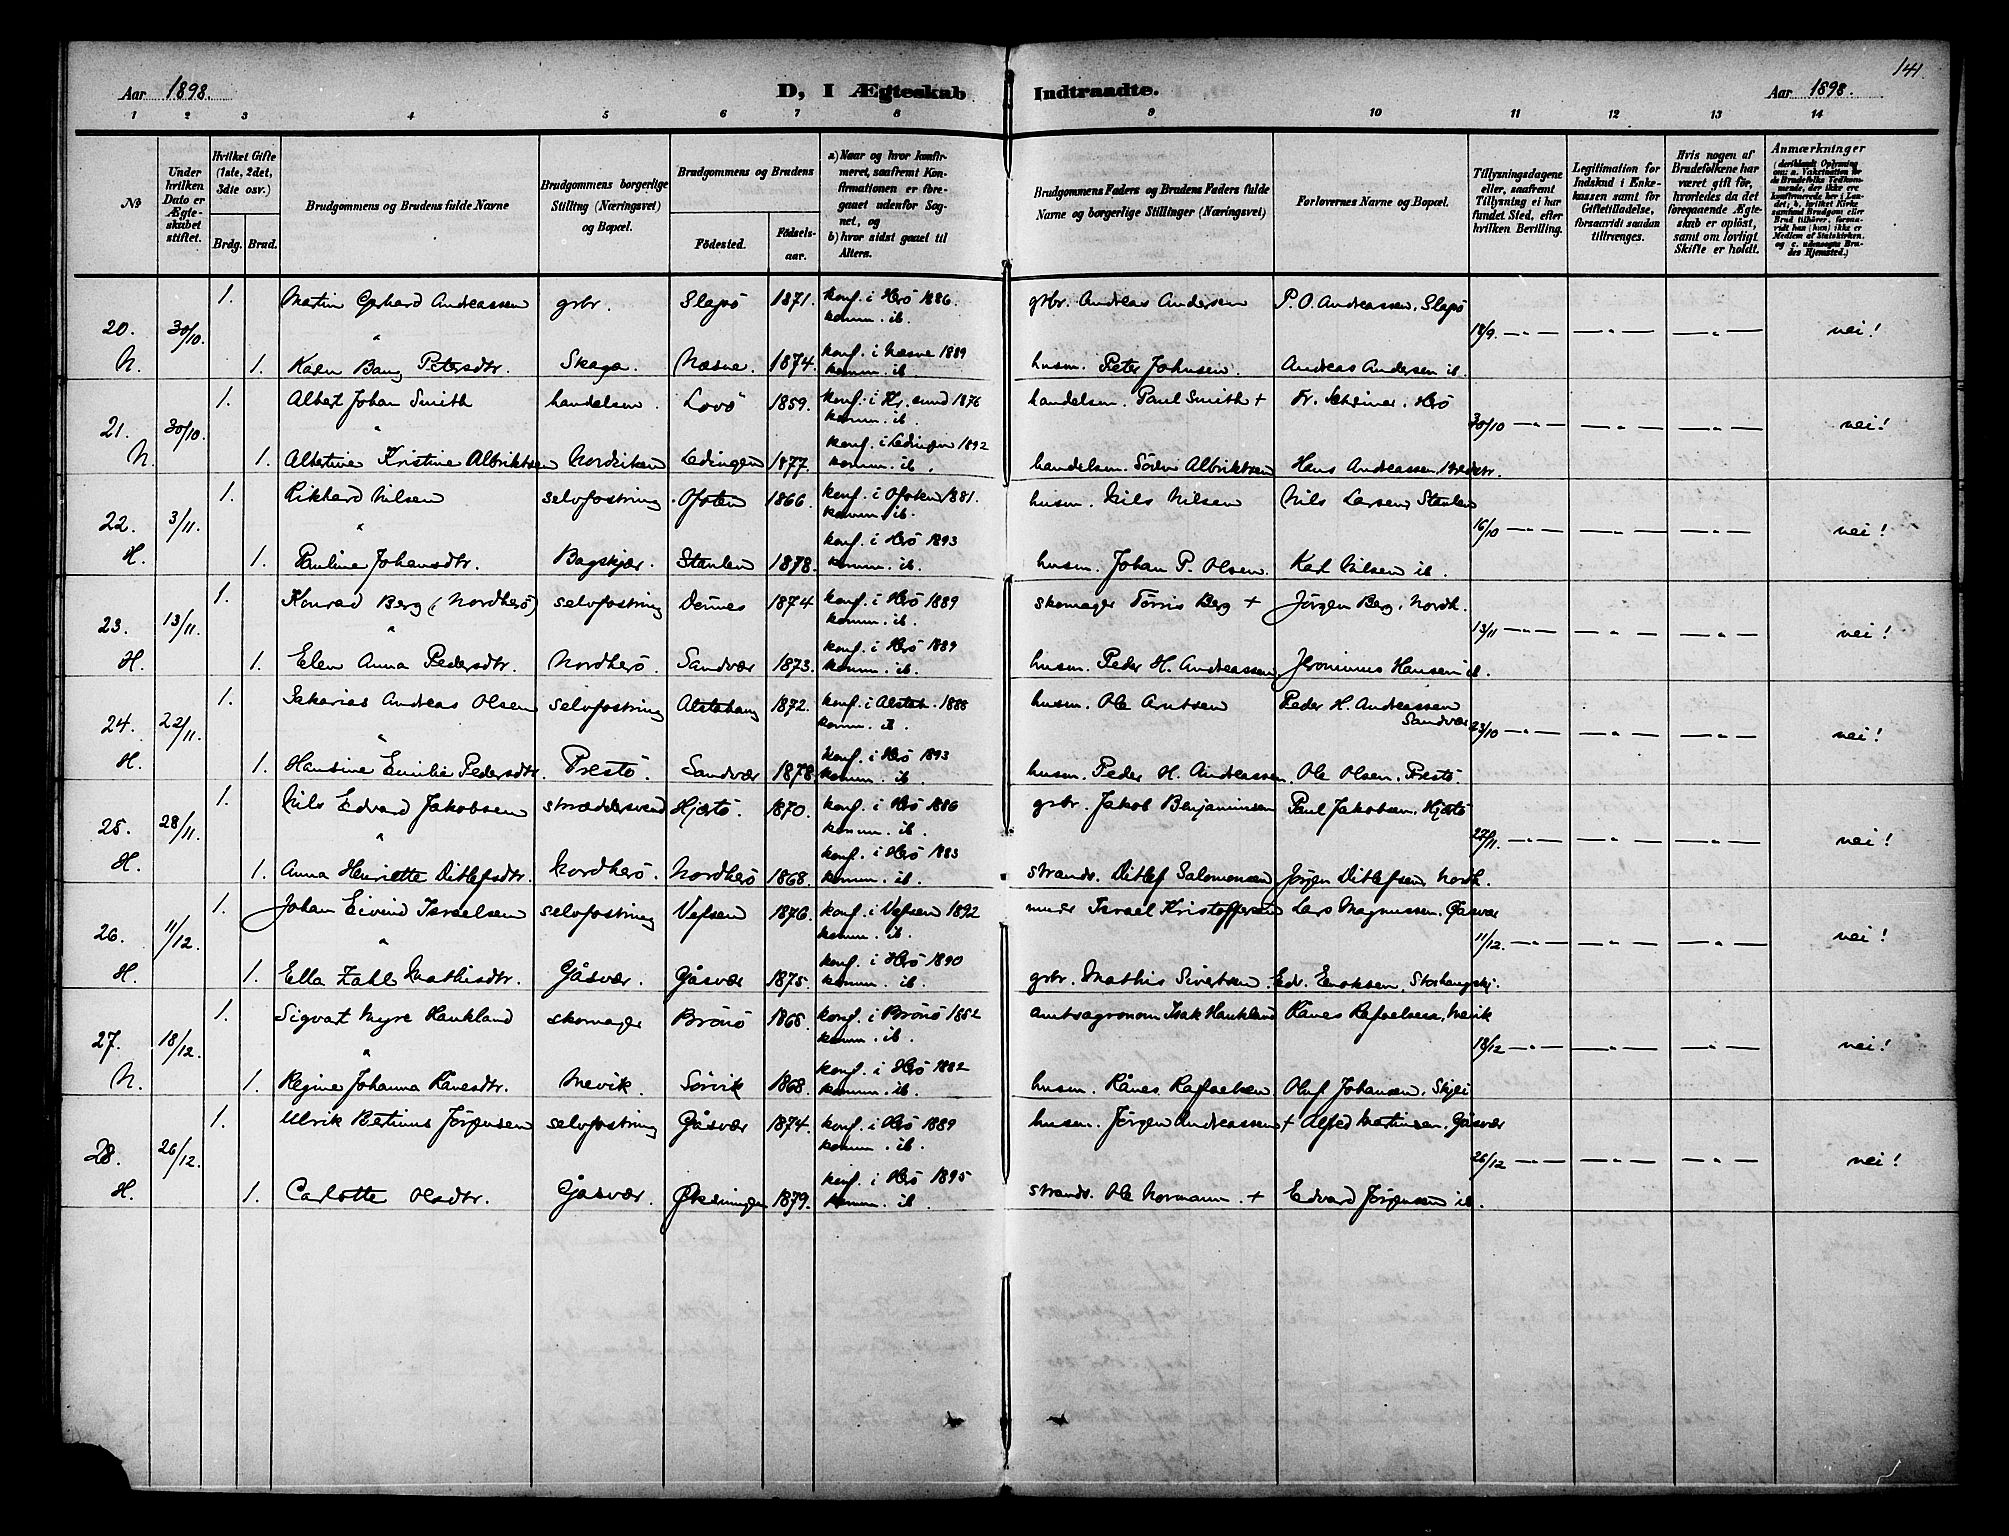 141.
Aar 1898. D, I Ægteskab Indtraadte. Aar 1898.
1 2 3 4 5 6 7 8 9 10 11 12 13 14
No
Under hvilken Dato er Ægteskabet stiftet.
Hvilket Gifte (1ste, 2det, 3die osv.)
Brdg. Brud.
Brudgommens og Brudens fulde Navne
Brudgommens borgerlige Stilling (Næringsvei) og Bopæl.
Brudgommens og Brudens
Födested. Födselsaar.
a) Naar og hvor konfirmeret, saafremt Konfirmationen er foregaaet udenfor Sognet, og
b) hvor sidst gaaet til Alters.
Brudgommens Faders og Brudens Faders fulde Navne og borgerlige Stillinger (Næringsvei)
Forlovernes Navne og Bopæl.
Tillysningsdagene eller, saafremt Tillysning ei har fundet Sted, efter hvilken Bevilling.
Legitimation for Indskud i Enkekassen samt for Giftetilladelse, forsaavidt saadan tiltrænges.
Hvis nogen af Brudefolkene har været gift för, hvorledes da det foregaaende Ægteskab er oplöst, samt om lovligt Skifte er holdt.
Anmærkninger
20. 30/10. 1. Martin Gerhard Andreassen grbr. Slapö 1871. konf. i Herö 1886. komm. ib. grbr. Andreas Andersen P. O. Andreassen, Slapö 18/9 — " — — " — — " — nei!
N. 1. Karen Bang Petersdtr. Skaga. Næsne. 1874. konf. i Næsne 1889 komm. ib. husm. Peter Johnsen. Andreas Andersen ib.
21. 30/10. 1. Albert Johan Smith handelsm. Lovö 1859. konf. i Kr.sund 1876 komm. ib. handelsm. Paul Smith + Fr. , Herö 30/10 — " — — " — — " — nei!
N. 1. Albertine Kristine Albriktsen Lödingen 1877. konf. i Lödingen 1892 komm. ib. handelsm. Sören Albriktsen Hans Andreassen,
22. 3/11. 1. Rikhard Nilsen selvfostring Ofoten 1866 konf. i Ofoten 1881. komm. ib. husm. Nils Nilsen Nils Larsen, Staulen 16/10 — " — — " — — " — nei!
H. 1. Pauline Johansdtr. Bagskjær. Staulen 1878. konf. i Herö 1893 komm. ib. husm. Johan P. Olsen. Karl Nilsen ib.
23. 13/11. 1. Konrad Berg (Nordherö) selvfostring Dönnes 1874 konf. i Herö 1889 komm. ib. skomager Torris Berg + Jørgen Berg, Nordh. 13/11 — " — — " — — " — nei!
H. 1. Elen Anna Pedersdtr. Nordherö. Sandvær 1873. konf. i Herö 1889 komm. ib. husm. Peder H. Andreassen Jeronimus Hansen ib.
24. 22/11. 1. Sakarias Andreas Olsen selvfostring Alstahaug 1872. konf. i Alstah. 1888 komm. ib. husm. Ole Arntsen Peder H. Andreassen Sandvær 23/10 — " — — " — — " — nei!
H. 1. Hansine Emilie Pedersdtr. Prestö. Sandvær 1878. konf. i Herö 1893 komm. ib. husm. Peder H. Andreassen. Ole Olsen, Prestö.
25. 28/11. 1. Nils Edvard Jakobsen skræddersvend Hjartö. 1870. konf. i Herö 1886 komm. ib. grbr. Jakob Benjaminsen Paul Jakobsen, Hjartö 27/11. — " — — " — — " — nei!
H. 1. Anna Henriette Ditlefsdtr. Nordherö. Nordherö 1868. konf. i Herö 1883 komm. ib. strands. Ditlef Salomonsen Jörgen Ditlefsen, Nordh.
26. 11/12. 1. Johan Eivind Israelsen selvfostring Vefsen 1876 konf. i Vefsen 1892 komm. ib. Israel Kristoffersen Lars Magnussen, Gåsvær 11/12. — " — — " — — " — nei!
H. 1. Ella Zahl Mathisdtr. Gåsvær. Gåsvær 1875. konf. i Herö 1890 komm. ib. grbr. Mathis Sivertsen. Edv. Enoksen,
27. 18/12. 1. Sigvart Myre Haukland skomager Brönö 1868. konf. i Brönö 1882 komm. ib. amtsagronom Isak Haukland Rånes Rafaelsen, Mevik 18/12 — " — — " — — " — nei!
N. 1. Regine Johanna Rånesdtr. Mevik. Sörvik 1868. konf. i Herö 1882 komm. ib. husm. Rånes Rafaelsen Oluf Johansen,
28. 26/12. 1. Ulrik Bertinus Jörgensen selvfostring Gåsvær 1874. konf. i Herö 1889 komm. ib. husm. Jörgen Andreassen + Alfred Martinsen, Gåsvær 26/12 — " — — " — — " — nei!
H. 1. Carlotte Olsdtr. Gåsvær. Økesningen 1879. konf. i Herö 1895 komm. ib. strands. Ole Normann. + Edvard Jörgensen ib.